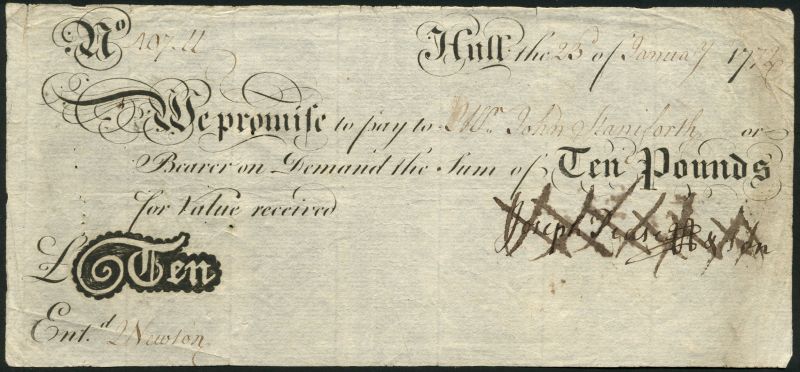 No
Hull the 23 of January 177
We promise to pay to Mr. John Staniforth or
Bearer on Demand the Sum of Ten Pounds
for Value received
Joseph
£ Ten
Ent.d Newton